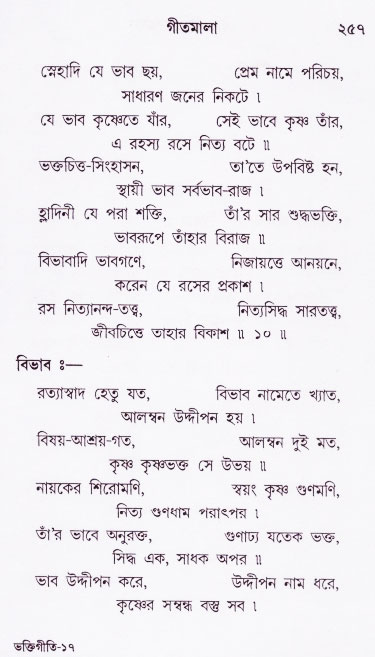 গীতমালা ২৫৭
স্নেহাদি যে ভাব ছয়, প্রেম নামে পরিচয়,
সাধারণ জনের নিকটে ।
যে ভাব কৃষ্ণেতে যাঁর, সেই ভাবে কৃষ্ণ তাঁর,
এ রহস্য রসে নিত্য বটে ॥
ভক্তচিত্ত-সিংহাসন, তা'তে উপবিষ্ট হন,
স্থায়ী ভাব সর্বভাব-রাজ ।
হ্লাদিনী যে পরা শক্তি, তাঁ'র সার শুদ্ধভক্তি,
ভাবরূপে তাঁহার বিরাজ ॥
বিভাবাদি ভাবগণে, নিজায়ত্তে আনয়নে,
করেন যে রসের প্রকাশ ।
রস নিত্যানন্দ-তত্ত্ব, নিত্যসিদ্ধ সারতত্ত্ব,
জীবচিত্তে তাহার বিকাশ ॥ ১০ ॥
বিভাব ঃ—
রত্যাস্বাদ হেতু যত, বিভাব নামেতে খ্যাত,
আলম্বন উদ্দীপন হয় ।
বিষয়-আশ্রয়-গত, আলম্বন দুই মত,
কৃষ্ণ কৃষ্ণভক্ত সে উভয় ॥
নায়কের শিরোমণি, স্বয়ং কৃষ্ণ গুণমণি,
নিত্য গুণধাম পরাৎপর ।
তাঁ'র ভাবে অনুরক্ত, গুণাঢ্য যতেক ভক্ত,
সিদ্ধ এক, সাধক অপর ॥
ভাব উদ্দীপন করে, উদ্দীপন নাম ধরে,
কৃষ্ণের সম্বন্ধ বস্তু সব ।
ভক্তিগীতি-১৭